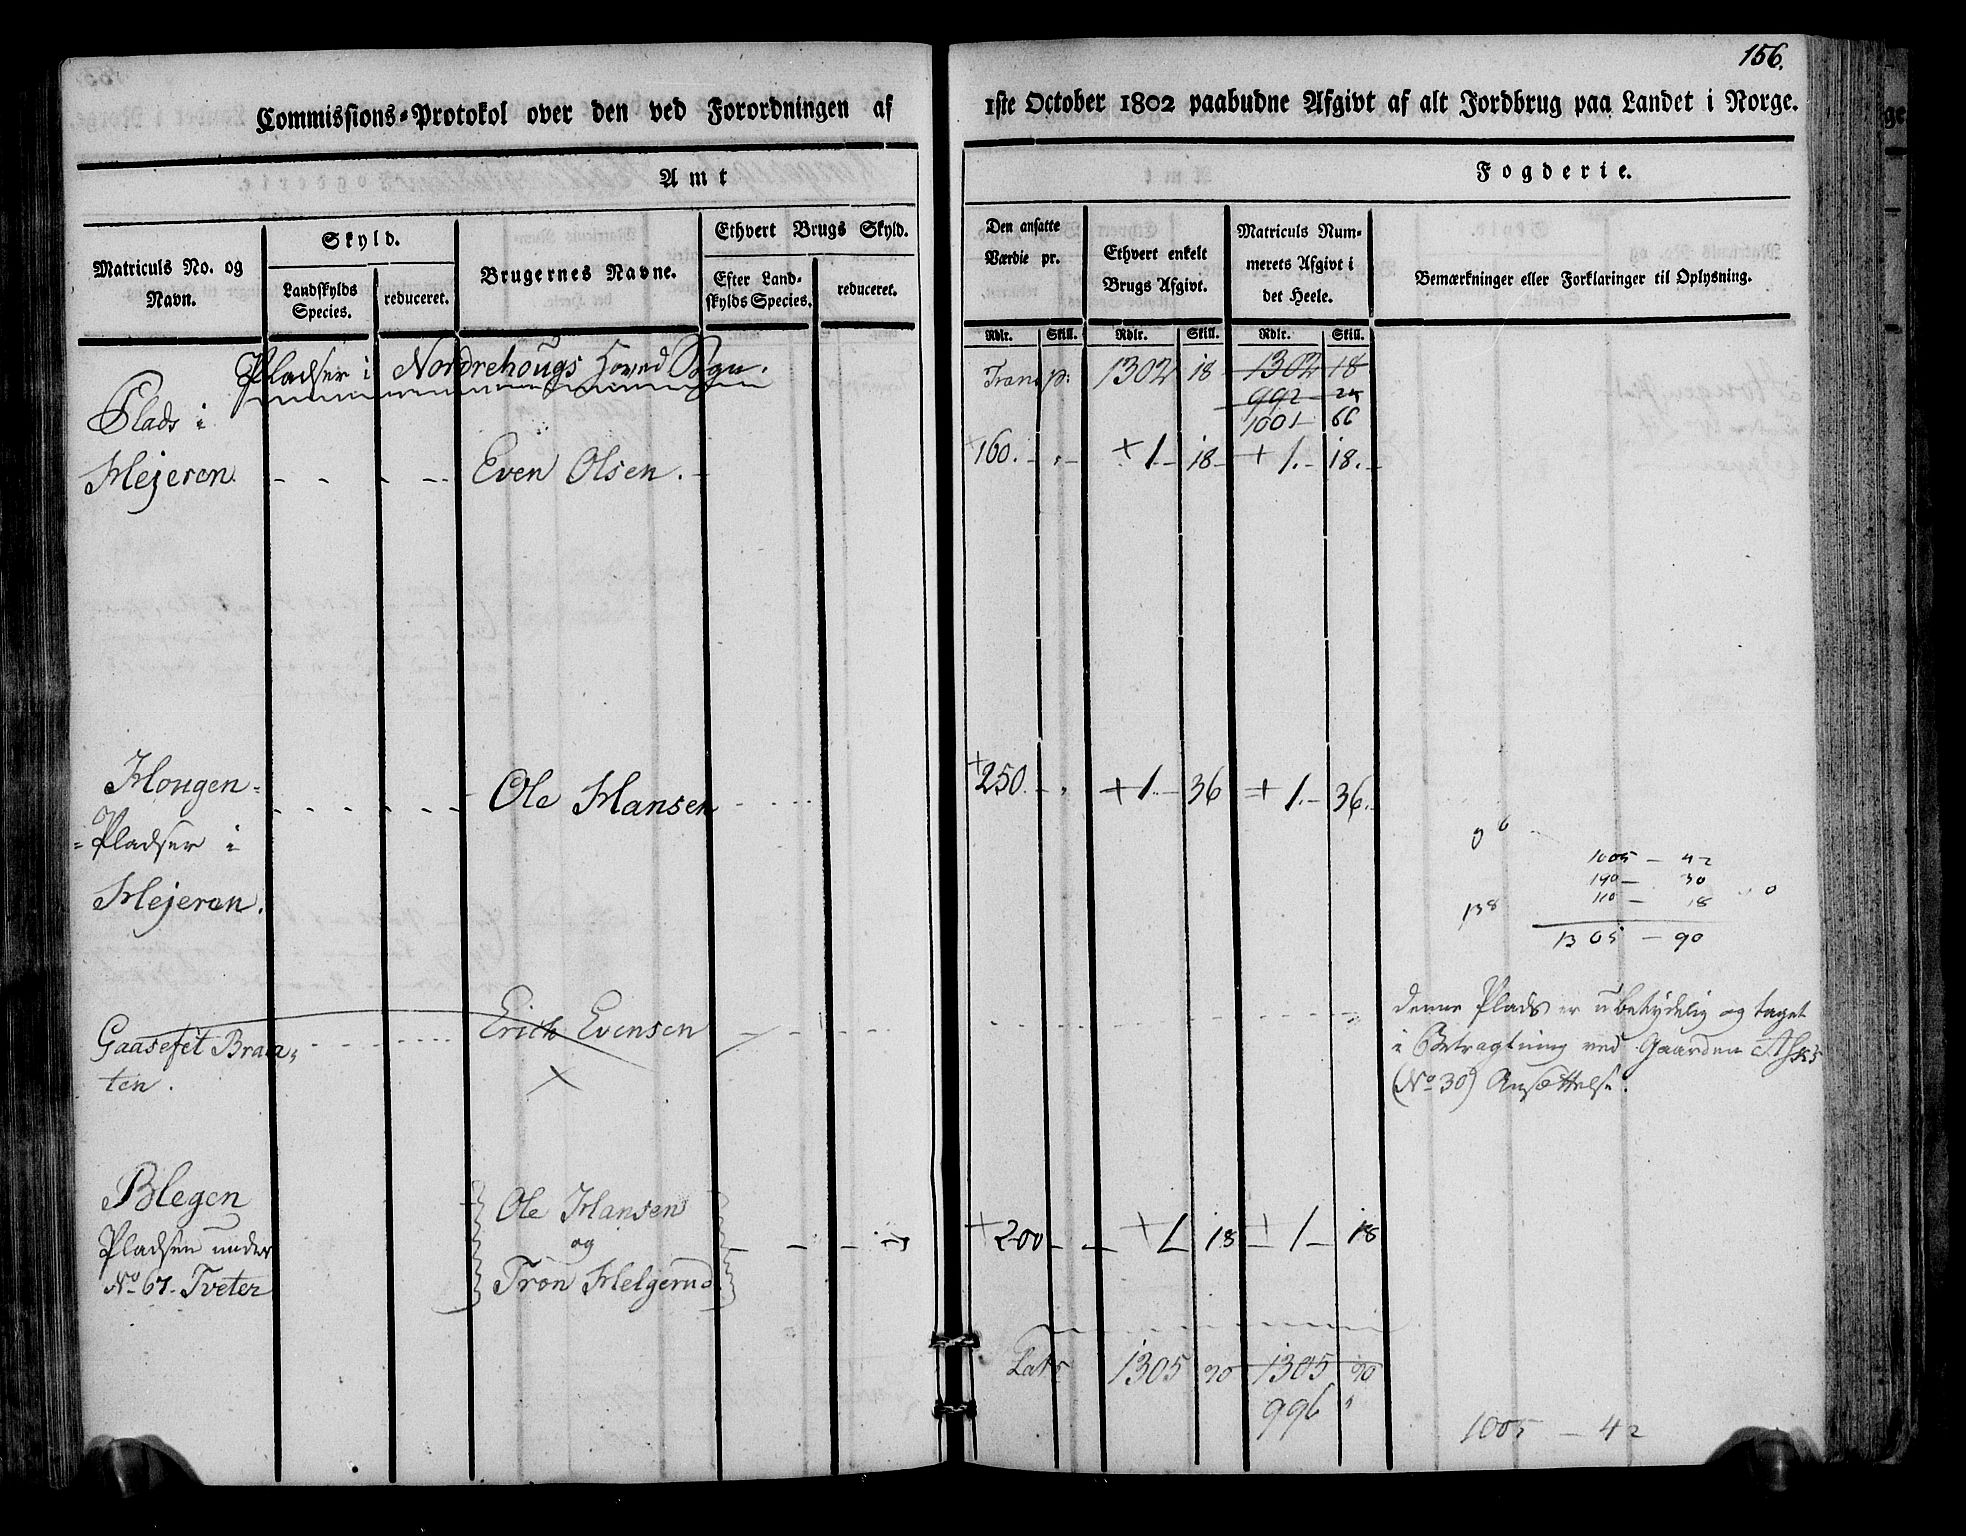 156.
Commissions=Protokol over den ved Forordningen af
1ste October 1802 paabudne Afgivt af alt Jordbrug paa Landet i Norge.
Amt
Fogderie.
Matriculs No. og
Navn.
Skyld.
Landskylds
Species.
reduceret.
Brugernes Navne.
Ethvert Brugs Skyld.
Efter Land-
skylds Species.
reduceret.
Den ansatte
Værdie pr.
Ethvert enkelt
Brugs Afgivt.
Matriculs Num-
merets Afgivt i
det Heele.
Bemærkninger eller Forklaringer til Oplysning.
Rdlr. Skill. Rdlr. Skill. Rdlr. Skill.
Pladser i Nordrehougs Hoved Sogn.
Transp: 1302 18 1302 18
992 24
1001 66
Plads i
Hejeren Even Olsen. +160. - + 1. - 18 - + 1. - 18. -
Hougen=
=Pladser i
Hejeren. Ole Hansen +250. - + 1. - 36 + 1. - 36. -
1005 - 42
190 - 30
110 - 18
1305 - 90
138
Gaasefet Braa,
ten. Erich Evensen
X
denne Plads er ubetydelig og taget
i Betragtning ved Gaarden Ask's
(No 30) Ansættelse.
Blegen
Pladsen under
No 67. Tveter
Ole Hansen
og
Tron Helgerud
+200 - + 1 18 + 1 - 18
Lats 1305 90 1305 90
996 "
1005 - 42